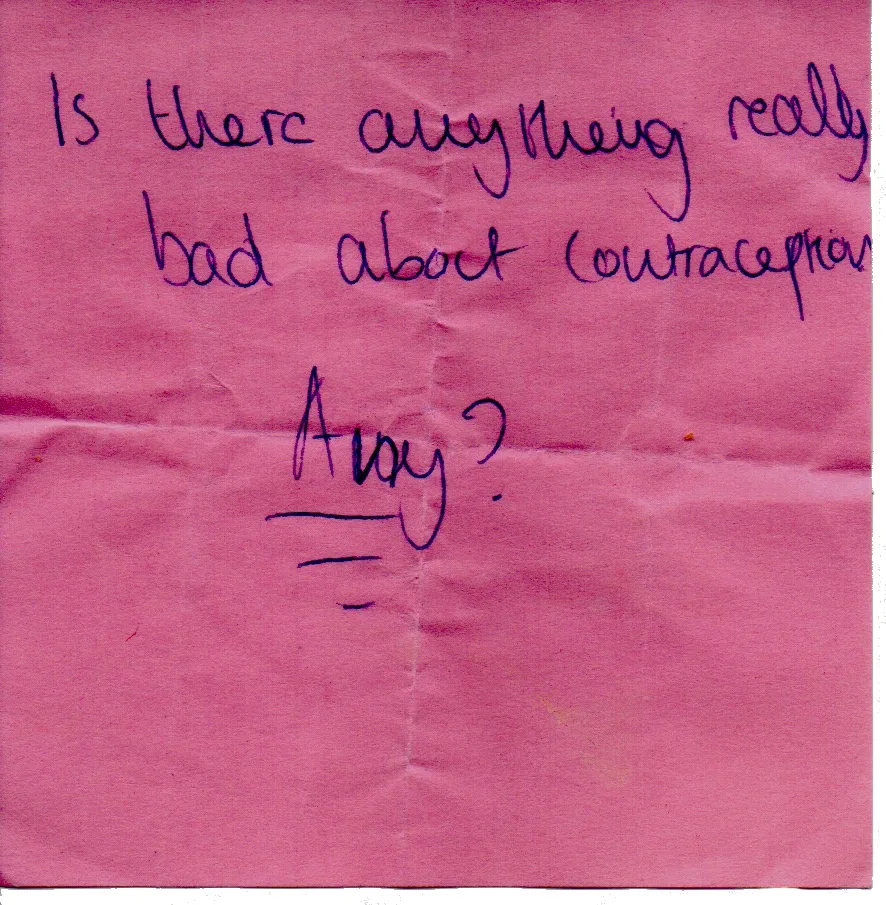 Is there anything really
bad about contraception